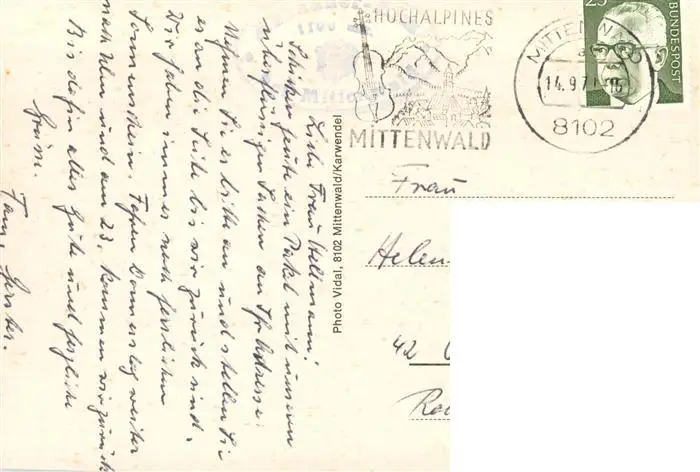 Liebe Frau Stellmann!
Schicken heute ein Paket mit unseren
überflüssigen Sachen an Ihre Adresse.
Nehmen Sie es bitte an und stellen Sie
es an die Seite bis wir zurück sind.
Wir haben immer noch herrlichen
Sonnenschein. Fahren Donnerstag weiter
nach Ulm und am 23. kommen wir zurück
Bis dahin alles Gute und herzliche
Grüße.
Fam. Gerster.
Photo Vidal, 8102 Mittenwald/Karwendel
HOCHALPINES
MITTENWALD
MITTENWALD
14.9.71-16
8102
25
BUNDESPOST
Frau
Helen
42